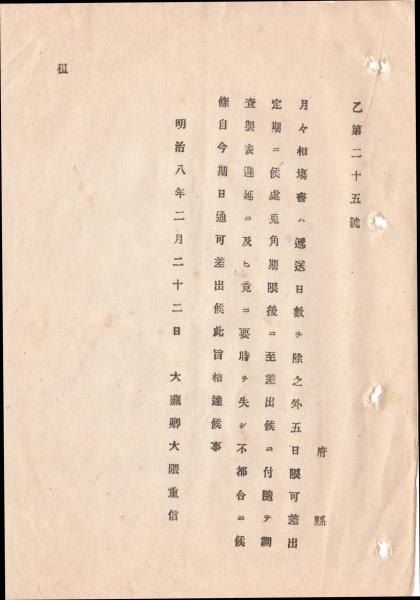 乙第二十五號
府縣
月々相塲書ハ遞送日數ヲ除之外五日限可差出
定期ニ候處兎角期限後ニ至差出候ニ付隨テ調
査製表遲延ニ及ヒ竟ニ要時ヲ失シ不都合ニ候
條自今期日通可差出候此旨相達候事
明治八年二月二十二日 大藏卿大隈重信
租